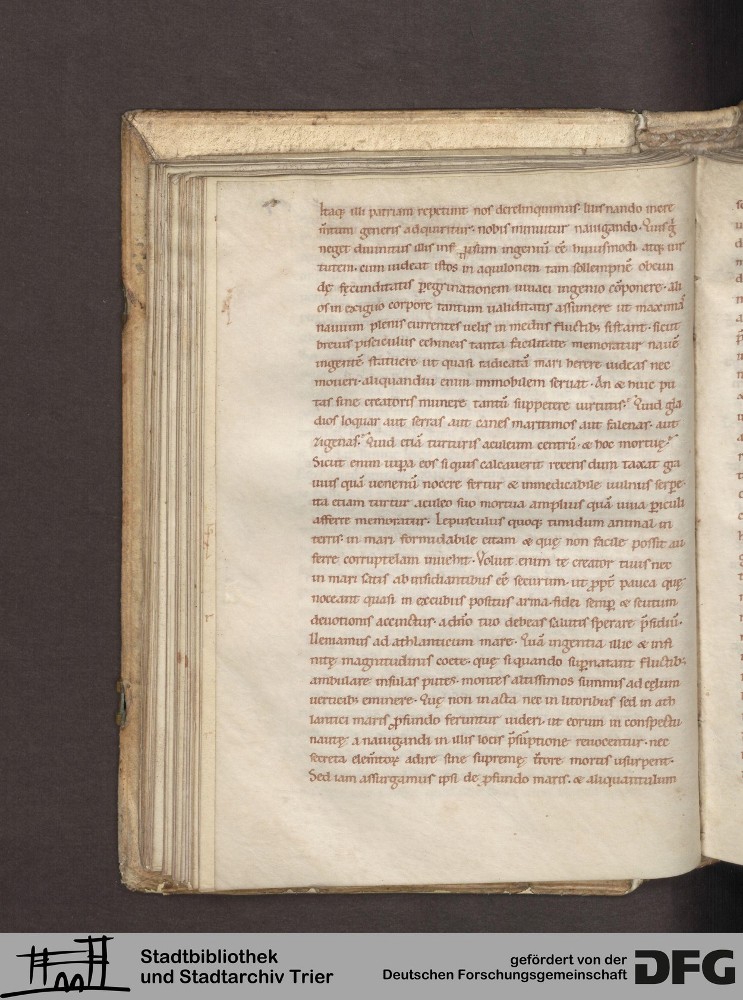 Itaq; illi patriam repetunt nos derelinquimus. illis nando incre
mtum generis adquiritur. nobis minuitur nauigando. Quis g
neget diuinitus illis insitum ingeniũ eẽ huiusmodi atq; uir
tutem. cum uideat istos in aquilonem tam sollempnẽ obeun
dę fęcunditatis peregrinationem uiuaci ingenio cõponere. ali
os in exiguo corpore tantum ualiditatis assumere ut maximaˢ
nauium plenis currentes uelis in mediis fluctib; sistant. sicut
breuis pisciculus echineis tanta facilitate memoratur nauẽ
ingentẽ statuere ut quasi radicatã mari herere uideas nec
moueri. aliquandiu enim immobilem seruat. An & huic pu
tas sine creatoris munere tantũ suppetere uirtutis? Quid gla
dios loquar aut serras aut canes maritimos aut falenas. aut
zigenas? Quid etiã turturis aculeum centrũ. & hoc mortuę?
Sicut enim uipra eos si quis calcauerit recens dum taxat gra
uius quã uenenũ nocere fertur & inmedicabile uulnus serpe.
ita etiam turtur aculeo suo mortua amplius quã uiua piculi
afferre memoratur. Lepusculus quoq; timidum animal in
terris. in mari formidabile etiam & quę non facile possit au
ferre corruptelam inuehit. Voluit enim te creator tuus nec
in mari satis ab insidiantibus eẽ securum. ut ppt pauca quę
noceant quasi in excubiis positus arma fidei semp & scutum
deuotionis accinctus. a dño tuo debeas salutis sperare psidiũ.
Ueniamus ad athlanticum mare. Quã ingentia illic & infi
nitę magnitudinis coete. quę si quando supnatant fluctib;
ambulare insulas putes. montes altissimos summis ad cęlum
uerticib; eminere. Quę non in acta nec in litoribus sed in ath
lantici maris pfundo feruntur uideri. ut eorum in conspectu
nautę a nauigandi in illis locis psũptione reuocentur. nec
secreta elemtoꝝ adire sine supremę trore mortis usurpent.
Sed iam assurgamus ipsi de pfundo maris. & aliquantulum
Stadtbibliothek
und Stadtarchiv Trier
gefördert von der
Deutschen Forschungsgemeinschaft
DFG